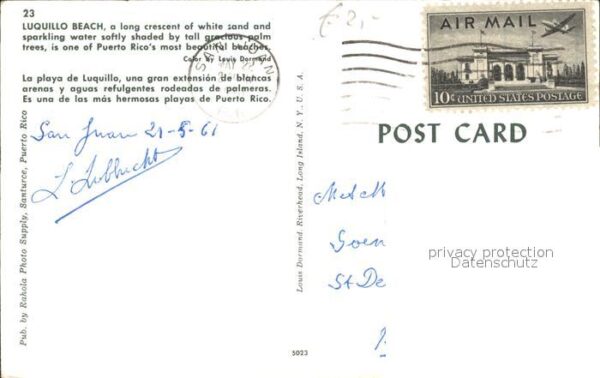 23
LUQUILLO BEACH, a long crescent of white sand and
sparkling water softly shaded by tall gracious palm
trees, is one of Puerto Rico's most beautiful beaches.
Color by Louis Dormand
La playa de Luquillo, una gran extensión de blancas
arenas y aguas refulgentes rodeadas de palmeras.
Es una de las más hermosas playas de Puerto Rico.
San Juan 21-5-61
Pub. by Rahola Photo Supply, Santurce, Puerto Rico
SAN JUAN
MAY 22
Louis Dormand, Riverhead, Long Island, N. Y., U. S. A.
5023
€ 2,-
AIR MAIL
10¢ UNITED STATES POSTAGE
POST CARD
St De
privacy protection
Datenschutz